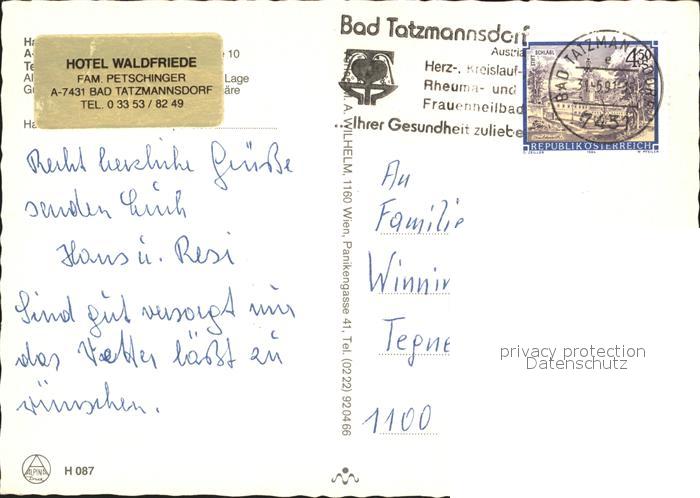 HOTEL WALDFRIEDE
FAM. PETSCHINGER
A-7431 BAD TATZMANNSDORF
TEL. 0 33 53 / 82 49
10
Lage
Recht herzliche Grüße
senden Euch
Hans u. Resi
Sind gut versorgt nur
das Wetter läßt zu
wünschen.
ALPINA
H 087
A. WILHELM, 1160 Wien, Panikengasse 41, Tel. (0222) 920466
Bad Tatzmannsdorf
Austria
Herz-, Kreislauf-
Rheuma- und
Frauenheilbad
...Ihrer Gesundheit zuliebe
STIFT SCHLÄGL
4.50
REPUBLIK ÖSTERREICH
BAD TATZMANNSDORF
7431
An
Familie
Winnin
Tegne
1100
privacy protection
Datenschutz